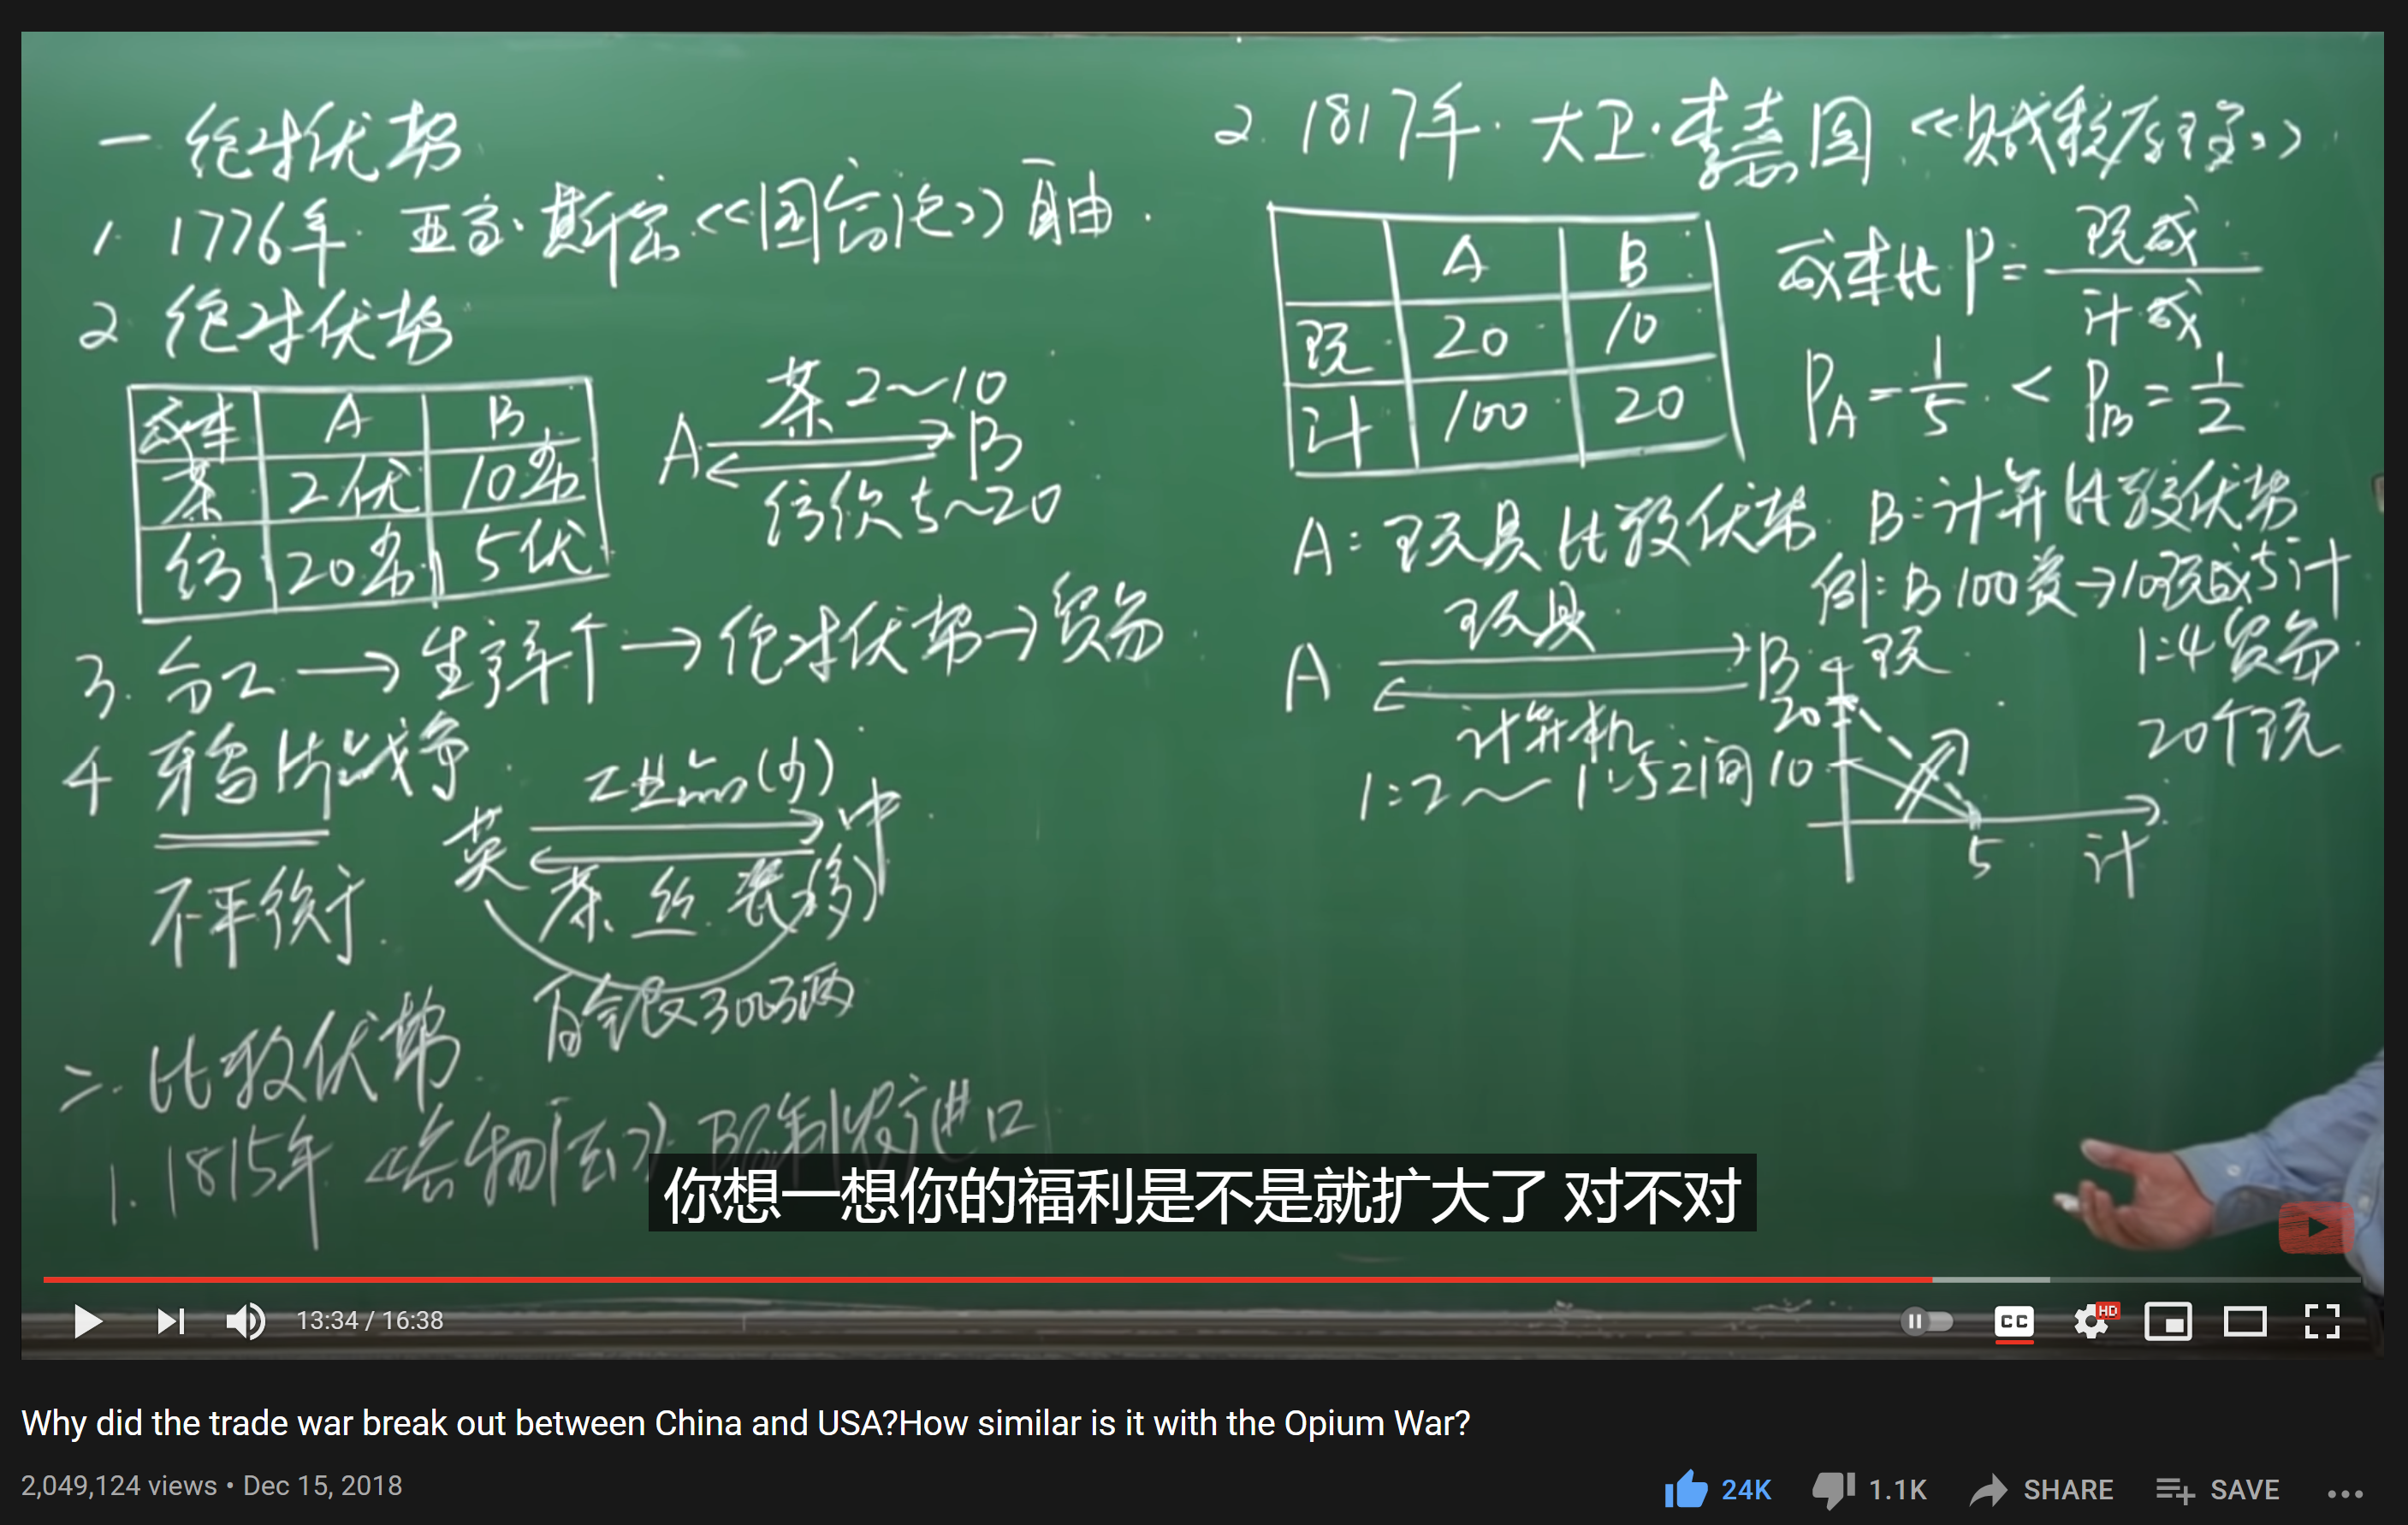 一 绝对优势
1. 1776年. 亚当·斯密《国富论》自由.
2 绝对优势
成本 A B
茶 2优 10劣
纺 20劣 5优
茶 2～10
A B
纺织 5～20
3. 分工→生产率↑→绝对优势→贸易
4 鸦片战争
工业品(少)
英 中
茶、丝.瓷(多)
不平衡.
白银300万两
二. 比较优势
1. 1815年《谷物法》限制农产进口
2. 1817年·大卫·李嘉图《赋税原理》
A B
玩 20 10
计 100 20
成本比 P = 玩成/计成
PA = 1/5 < PB = 1/2
A: 玩具比较优势. B: 计算比较优势
例: B 100资→10玩或5计
玩具
A B
计算机
1:2～1:5之间
1:4 贸易.
20个玩
玩
20
10
5
计
你想一想你的福利是不是就扩大了 对不对
13:34 / 16:38
CC
HD
Why did the trade war break out between China and USA?How similar is it with the Opium War?
2,049,124 views • Dec 15, 2018
24K 1.1K SHARE SAVE